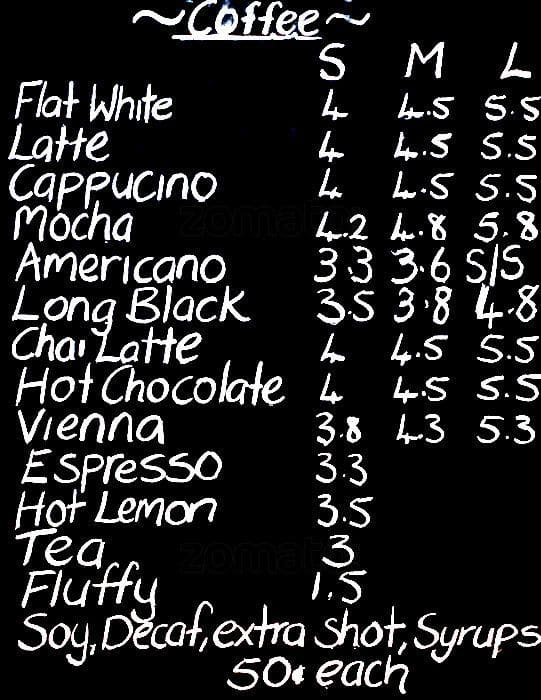 ~Coffee~
S M L
Flat White 4 4.5 5.5
Latte 4 4.5 5.5
Cappucino 4 4.5 5.5
Mocha 4.2 4.8 5.8
Americano 3.3 3.6 S/S
Long Black 3.5 3.8 4.8
Chai Latte 4 4.5 5.5
Hot Chocolate 4 4.5 5.5
Vienna 3.8 4.3 5.3
Espresso 3.3
Hot Lemon 3.5
Tea 3
Fluffy 1.5
Soy, Decaf, extra shot, Syrups
50¢ each